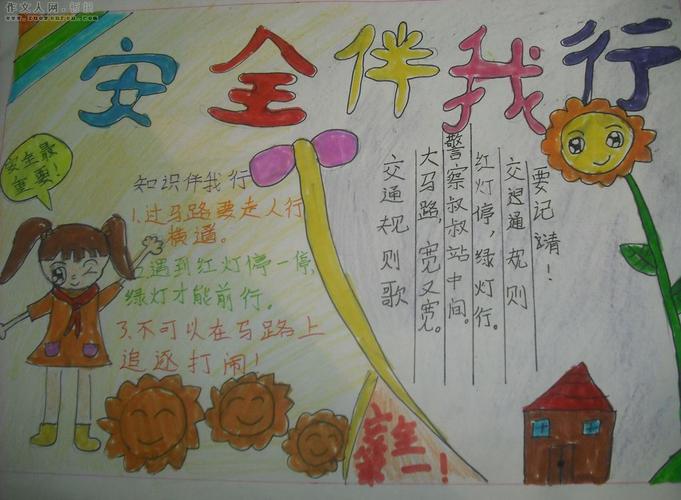 作文人网
www.zuowenren.com
安全伴我行
安全最
重要!
知识伴我行
1.过马路要走人行
横道。
2.遇到红灯停一停,
绿灯才能前行。
3.不可以在马路上
追逐打闹!
交通规则歌
大马路,宽又宽。
警察叔叔站中间。
红灯停,绿灯行。
交通规则
要记清!
安全
第一!